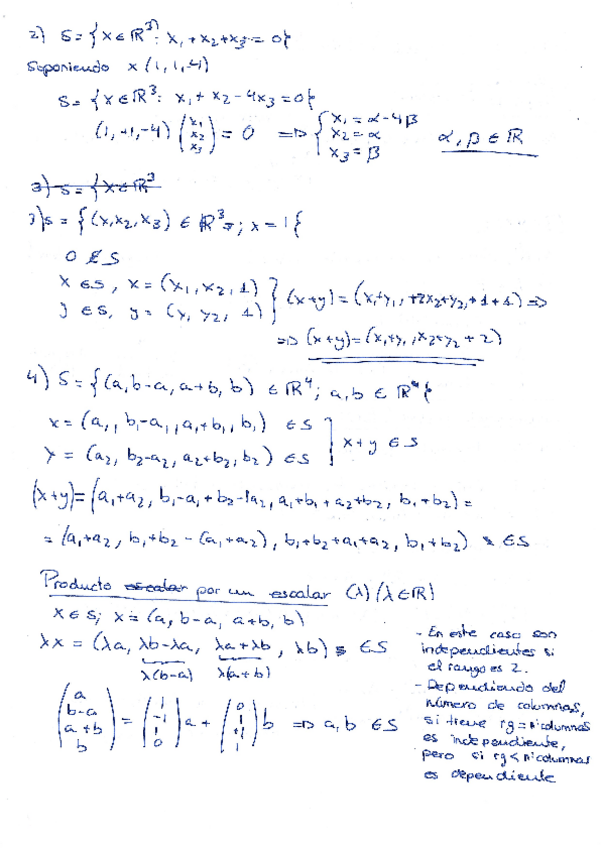 2) S = { x ∈ ℝ³ : x₁ + x₂ + x₃ = 0 {
Suponiendo x (1, 1, -4)
S = { x ∈ ℝ³ : x₁ + x₂ - 4x₃ = 0 {
(1, -1, -4) (x₁ x₂ x₃) = 0 ⇒ { x₁ = α - 4β
x₂ = α
x₃ = β
α, β ∈ ℝ
3) S = { x ∈ ℝ³
3) S = { (x, x₂, x₃) ∈ ℝ³ ; x = 1 {
0 ∉ S
x ∈ S, x = (x₁, x₂, 1)
y ∈ S, y = (y, y₂, 1)
(x+y) = (x₁+y₁, +2x₂+y₂, +1+1) ⇒
⇒ (x+y) = (x₁+y₁, x₂+y₂ + 2)
4) S = { (a, b-a, a+b, b) ∈ ℝ⁴ ; a, b ∈ ℝ⁴ {
x = (a₁, b₁-a₁, a₁+b₁, b₁) ∈ S
y = (a₂, b₂-a₂, a₂+b₂, b₂) ∈ S
x+y ∈ S
(x+y) = (a₁+a₂, b₁-a₁+b₂-a₂, a₁+b₁+a₂+b₂, b₁+b₂) =
= (a₁+a₂, b₁+b₂-(a₁+a₂), b₁+b₂+a₁+a₂, b₁+b₂) ∈ S
Producto escalar por un escalar (λ) (λ ∈ ℝ)
x ∈ S; x = (a, b-a, a+b, b)
λx = (λa, λb-λa, λa+λb, λb) ∈ S
λ(b-a) λ(a+b)
(a b-a a+b b) = (1 -1 1 0) a + (0 1 +1 1) b ⇒ a, b ∈ S
- En este caso son
independientes si
el rango es 2.
- Dependiendo del
número de columnas,
si tiene rg = nºcolumnas
es independiente,
pero si rg < nºcolumnas
es dependiente